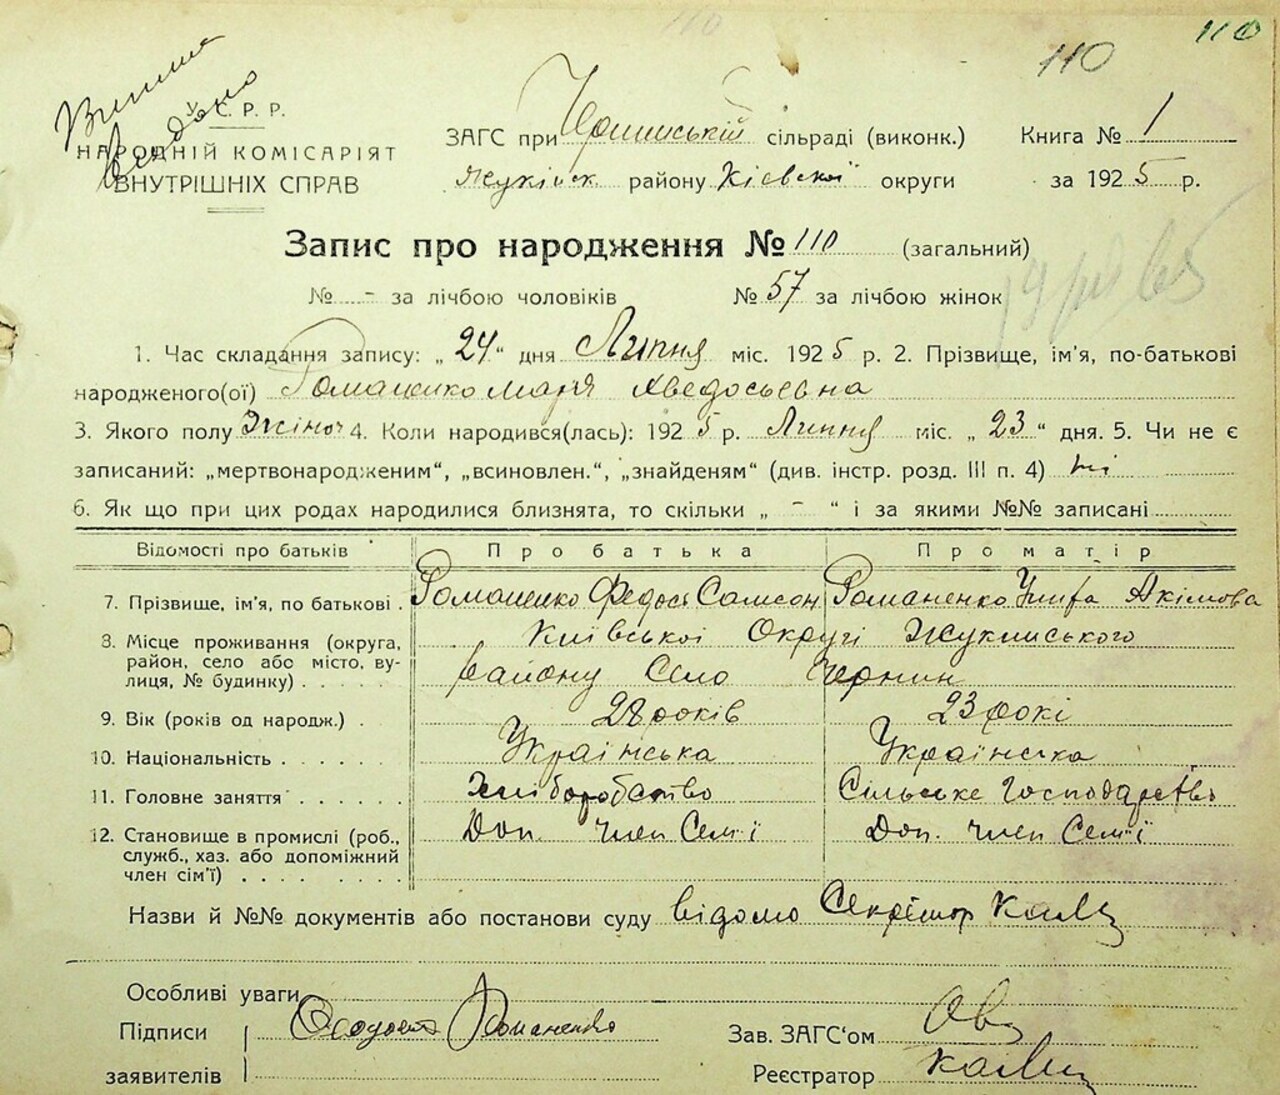 110
110
Виписка
видано
У. С. Р. Р.
НАРОДНІЙ КОМІСАРІЯТ
ВНУТРІШНІХ СПРАВ
ЗАГС при сільраді (виконк.)
району Київскої округи
Книга № 1
за 1925 р.
Запис про народження № 110 (загальний)
№ - за лічбою чоловіків № 57 за лічбою жінок
1. Час складання запису: „24“ дня Липня міс. 1925 р. 2. Прізвище, ім'я, по-батькові
народженого(ої) Романенко Марія Хведосьевна
3. Якого полу Жіноч 4. Коли народився(лась): 1925 р. Липня міс. „23“ дня. 5. Чи не є
записаний: „мертвонародженим“, „всиновлен.“, „знайденям“ (див. інстр. розд. III п. 4) ні
6. Як що при цих родах народилися близнята, то скільки „ - “ і за якими №№ записані
Відомості про батьків Про батька Про матір
7. Прізвище, ім'я, по батькові . Романенко Федось Самсон Романенко Акімова
8. Місце проживання (округа, район, село або місто, вулиця, № будинку) . . . . . Київської Округі Жукинського
району Село Чернин
9. Вік (років од народж.) . 28 років 23 рокі
10. Національність . . . . . Українська Українска
11. Головне заняття . . . . . . Хліборобство Сільське Господарство
12. Становище в промислі (роб., служб., хаз. або допоміжний член сім'ї) . . . . . . . . Доп. член Сем'ї Доп. член Сем'ї
Назви й №№ документів або постанови суду відомо Секретар
Особливі уваги
Підписи Романенко Зав. ЗАГС'ом
заявителів Реєстратор